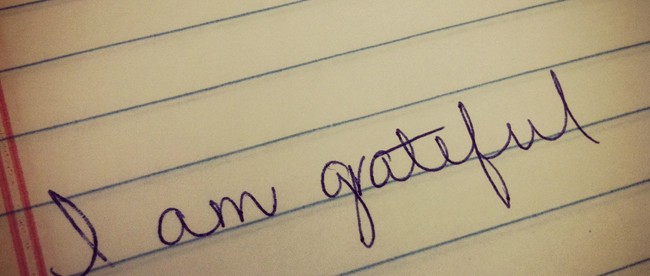 I am grateful